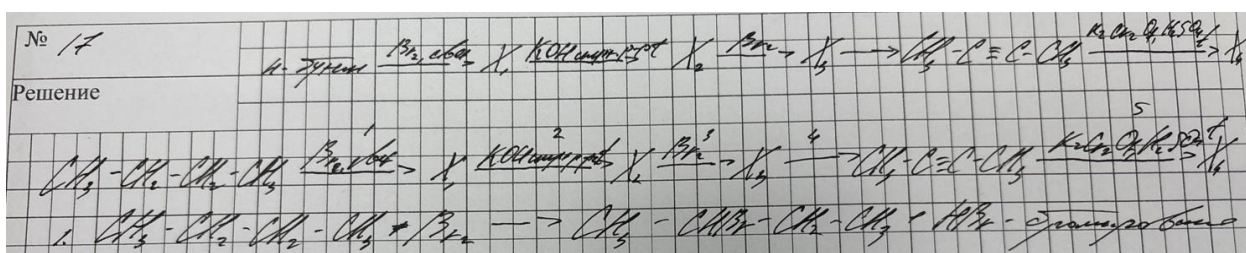 № 17
н-бутан Br₂, свет→ X₁ KOH спирт. р-р, t→ X₂ Br₂→ X₃ → CH₃-C≡C-CH₃ K₂Cr₂O₇, H₂SO₄, t→ X₄
Решение
CH₃-CH₂-CH₂-CH₃ 1 Br₂, свет→ X₁ 2 KOH спирт. р-р, t→ X₂ 3 Br₂→ X₃ 4→ CH₃-C≡C-CH₃ 5 K₂Cr₂O₇, H₂SO₄, t→ X₄
1. CH₃-CH₂-CH₂-CH₃ + Br₂ → CH₃-CHBr-CH₂-CH₃ + HBr - бромирование